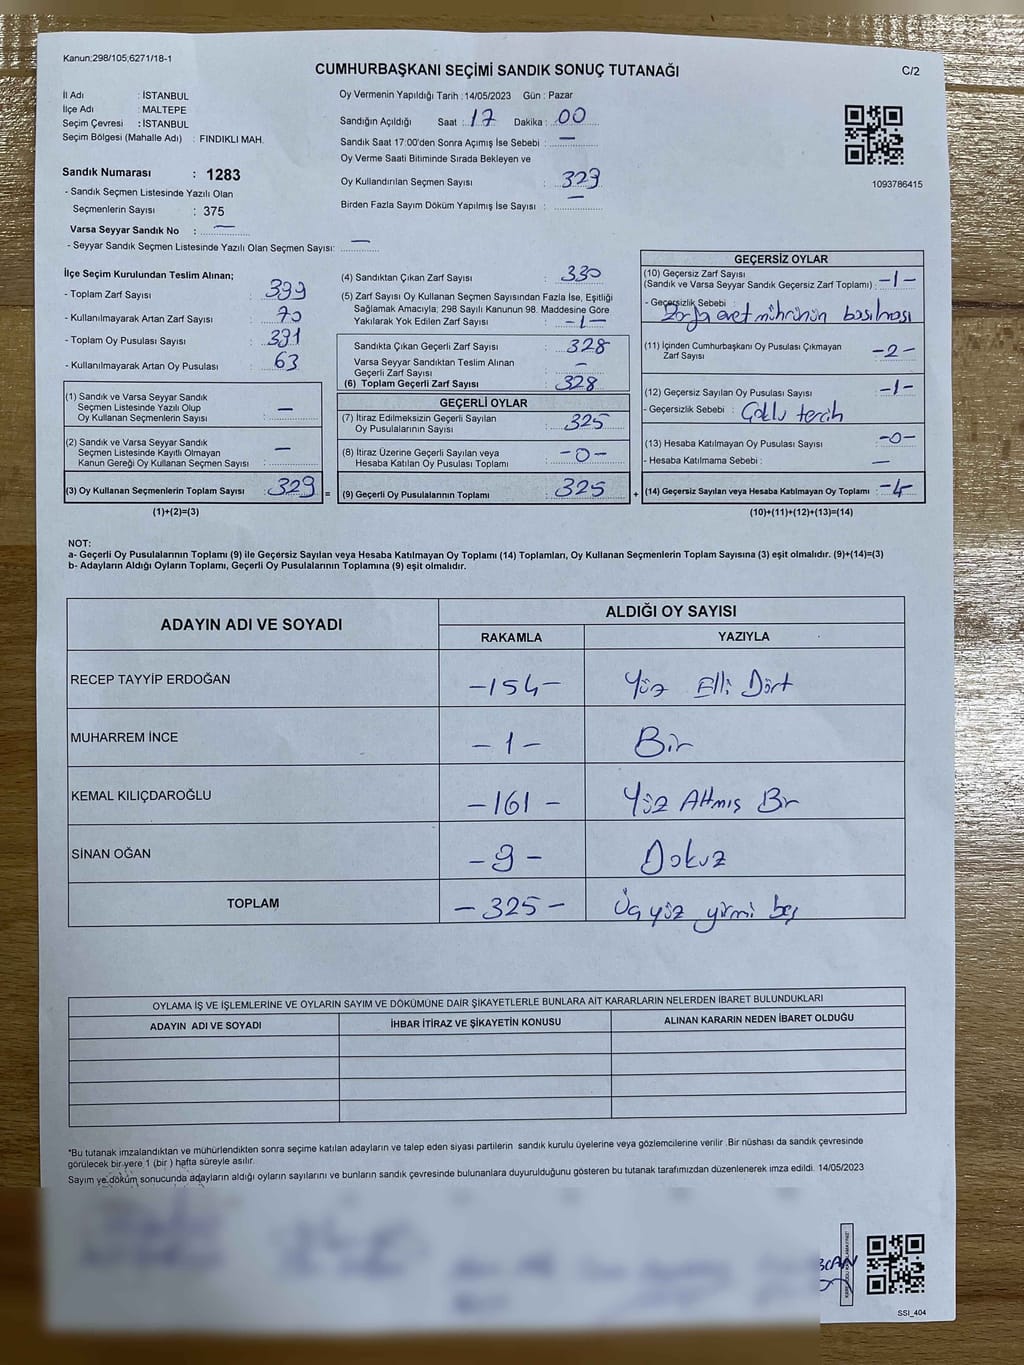 Kanun;298/105;6271/18-1
CUMHURBAŞKANI SEÇİMİ SANDIK SONUÇ TUTANAĞI
C/2
İl Adı : İSTANBUL
İlçe Adı : MALTEPE
Seçim Çevresi : İSTANBUL
Seçim Bölgesi (Mahalle Adı) : FINDIKLI MAH.
Sandık Numarası : 1283
- Sandık Seçmen Listesinde Yazılı Olan
Seçmenlerin Sayısı : 375
Varsa Seyyar Sandık No : —
- Seyyar Sandık Seçmen Listesinde Yazılı Olan Seçmen Sayısı: —
Oy Vermenin Yapıldığı Tarih : 14/05/2023 Gün : Pazar
Sandığın Açıldığı Saat : 17 Dakika : 00
Sandık Saat 17:00'den Sonra Açımış İse Sebebi : —
Oy Verme Saati Bitiminde Sırada Bekleyen ve
Oy Kullandırılan Seçmen Sayısı : 329
Birden Fazla Sayım Döküm Yapılmış İse Sayısı : —
1093786415
İlçe Seçim Kurulundan Teslim Alınan;
- Toplam Zarf Sayısı : 399
- Kullanılmayarak Artan Zarf Sayısı : 70
- Toplam Oy Pusulası Sayısı : 391
- Kullanılmayarak Artan Oy Pusulası : 63
(1) Sandık ve Varsa Seyyar Sandık
Seçmen Listesinde Yazılı Olup
Oy Kullanan Seçmenlerin Sayısı : —
(2) Sandık ve Varsa Seyyar Sandık
Seçmen Listesinde Kayıtlı Olmayan
Kanun Gereği Oy Kullanan Seçmen Sayısı : —
(3) Oy Kullanan Seçmenlerin Toplam Sayısı : 329 =
(1)+(2)=(3)
(4) Sandıktan Çıkan Zarf Sayısı : 330
(5) Zarf Sayısı Oy Kullanan Seçmen Sayısından Fazla İse, Eşitliği
Sağlamak Amacıyla; 298 Sayılı Kanunun 98. Maddesine Göre
Yakılarak Yok Edilen Zarf Sayısı : -1-
Sandıkta Çıkan Geçerli Zarf Sayısı : 328
Varsa Seyyar Sandıktan Teslim Alınan
Geçerli Zarf Sayısı : —
(6) Toplam Geçerli Zarf Sayısı : 328
GEÇERLİ OYLAR
(7) İtiraz Edilmeksizin Geçerli Sayılan
Oy Pusulalarının Sayısı : 325
(8) İtiraz Üzerine Geçerli Sayılan veya
Hesaba Katılan Oy Pusulası Toplamı : -0-
(9) Geçerli Oy Pusulalarının Toplamı : 325 +
GEÇERSİZ OYLAR
(10) Geçersiz Zarf Sayısı
(Sandık ve Varsa Seyyar Sandık Geçersiz Zarf Toplamı) : -1-
- Geçersizlik Sebebi :
Zarfa evet mührünün basılması
(11) İçinden Cumhurbaşkanı Oy Pusulası Çıkmayan
Zarf Sayısı : -2-
(12) Geçersiz Sayılan Oy Pusulası Sayısı : -1-
- Geçersizlik Sebebi : Çoklu tercih
(13) Hesaba Katılmayan Oy Pusulası Sayısı : -0-
- Hesaba Katılmama Sebebi : —
(14) Geçersiz Sayılan veya Hesaba Katılmayan Oy Toplamı : -4-
(10)+(11)+(12)+(13)=(14)
NOT:
a- Geçerli Oy Pusulalarının Toplamı (9) ile Geçersiz Sayılan veya Hesaba Katılmayan Oy Toplamı (14) Toplamları, Oy Kullanan Seçmenlerin Toplam Sayısına (3) eşit olmalıdır. (9)+(14)=(3)
b- Adayların Aldığı Oyların Toplamı, Geçerli Oy Pusulalarının Toplamına (9) eşit olmalıdır.
ADAYIN ADI VE SOYADI
ALDIĞI OY SAYISI
RAKAMLA YAZIYLA
RECEP TAYYİP ERDOĞAN -154- Yüz Elli Dört
MUHARREM İNCE -1- Bir
KEMAL KILIÇDAROĞLU -161- Yüz Altmış Bir
SİNAN OĞAN -9- Dokuz
TOPLAM -325- Üç yüz yirmi beş
OYLAMA İŞ VE İŞLEMLERİNE VE OYLARIN SAYIM VE DÖKÜMÜNE DAİR ŞİKAYETLERLE BUNLARA AİT KARARLARIN NELERDEN İBARET BULUNDUKLARI
ADAYIN ADI VE SOYADI İHBAR İTİRAZ VE ŞİKAYETİN KONUSU ALINAN KARARIN NEDEN İBARET OLDUĞU
*Bu tutanak imzalandıktan ve mühürlendikten sonra seçime katılan adayların ve talep eden siyasi partilerin sandık kurulu üyelerine veya gözlemcilerine verilir .Bir nüshası da sandık çevresinde
görülecek bir yere 1 (bir ) hafta süreyle asılır.
Sayım ve döküm sonucunda adayların aldığı oyların sayılarını ve bunların sandık çevresinde bulunanlara duyurulduğunu gösteren bu tutanak tarafımızdan düzenlenerek imza edildi. 14/05/2023
SSI_404